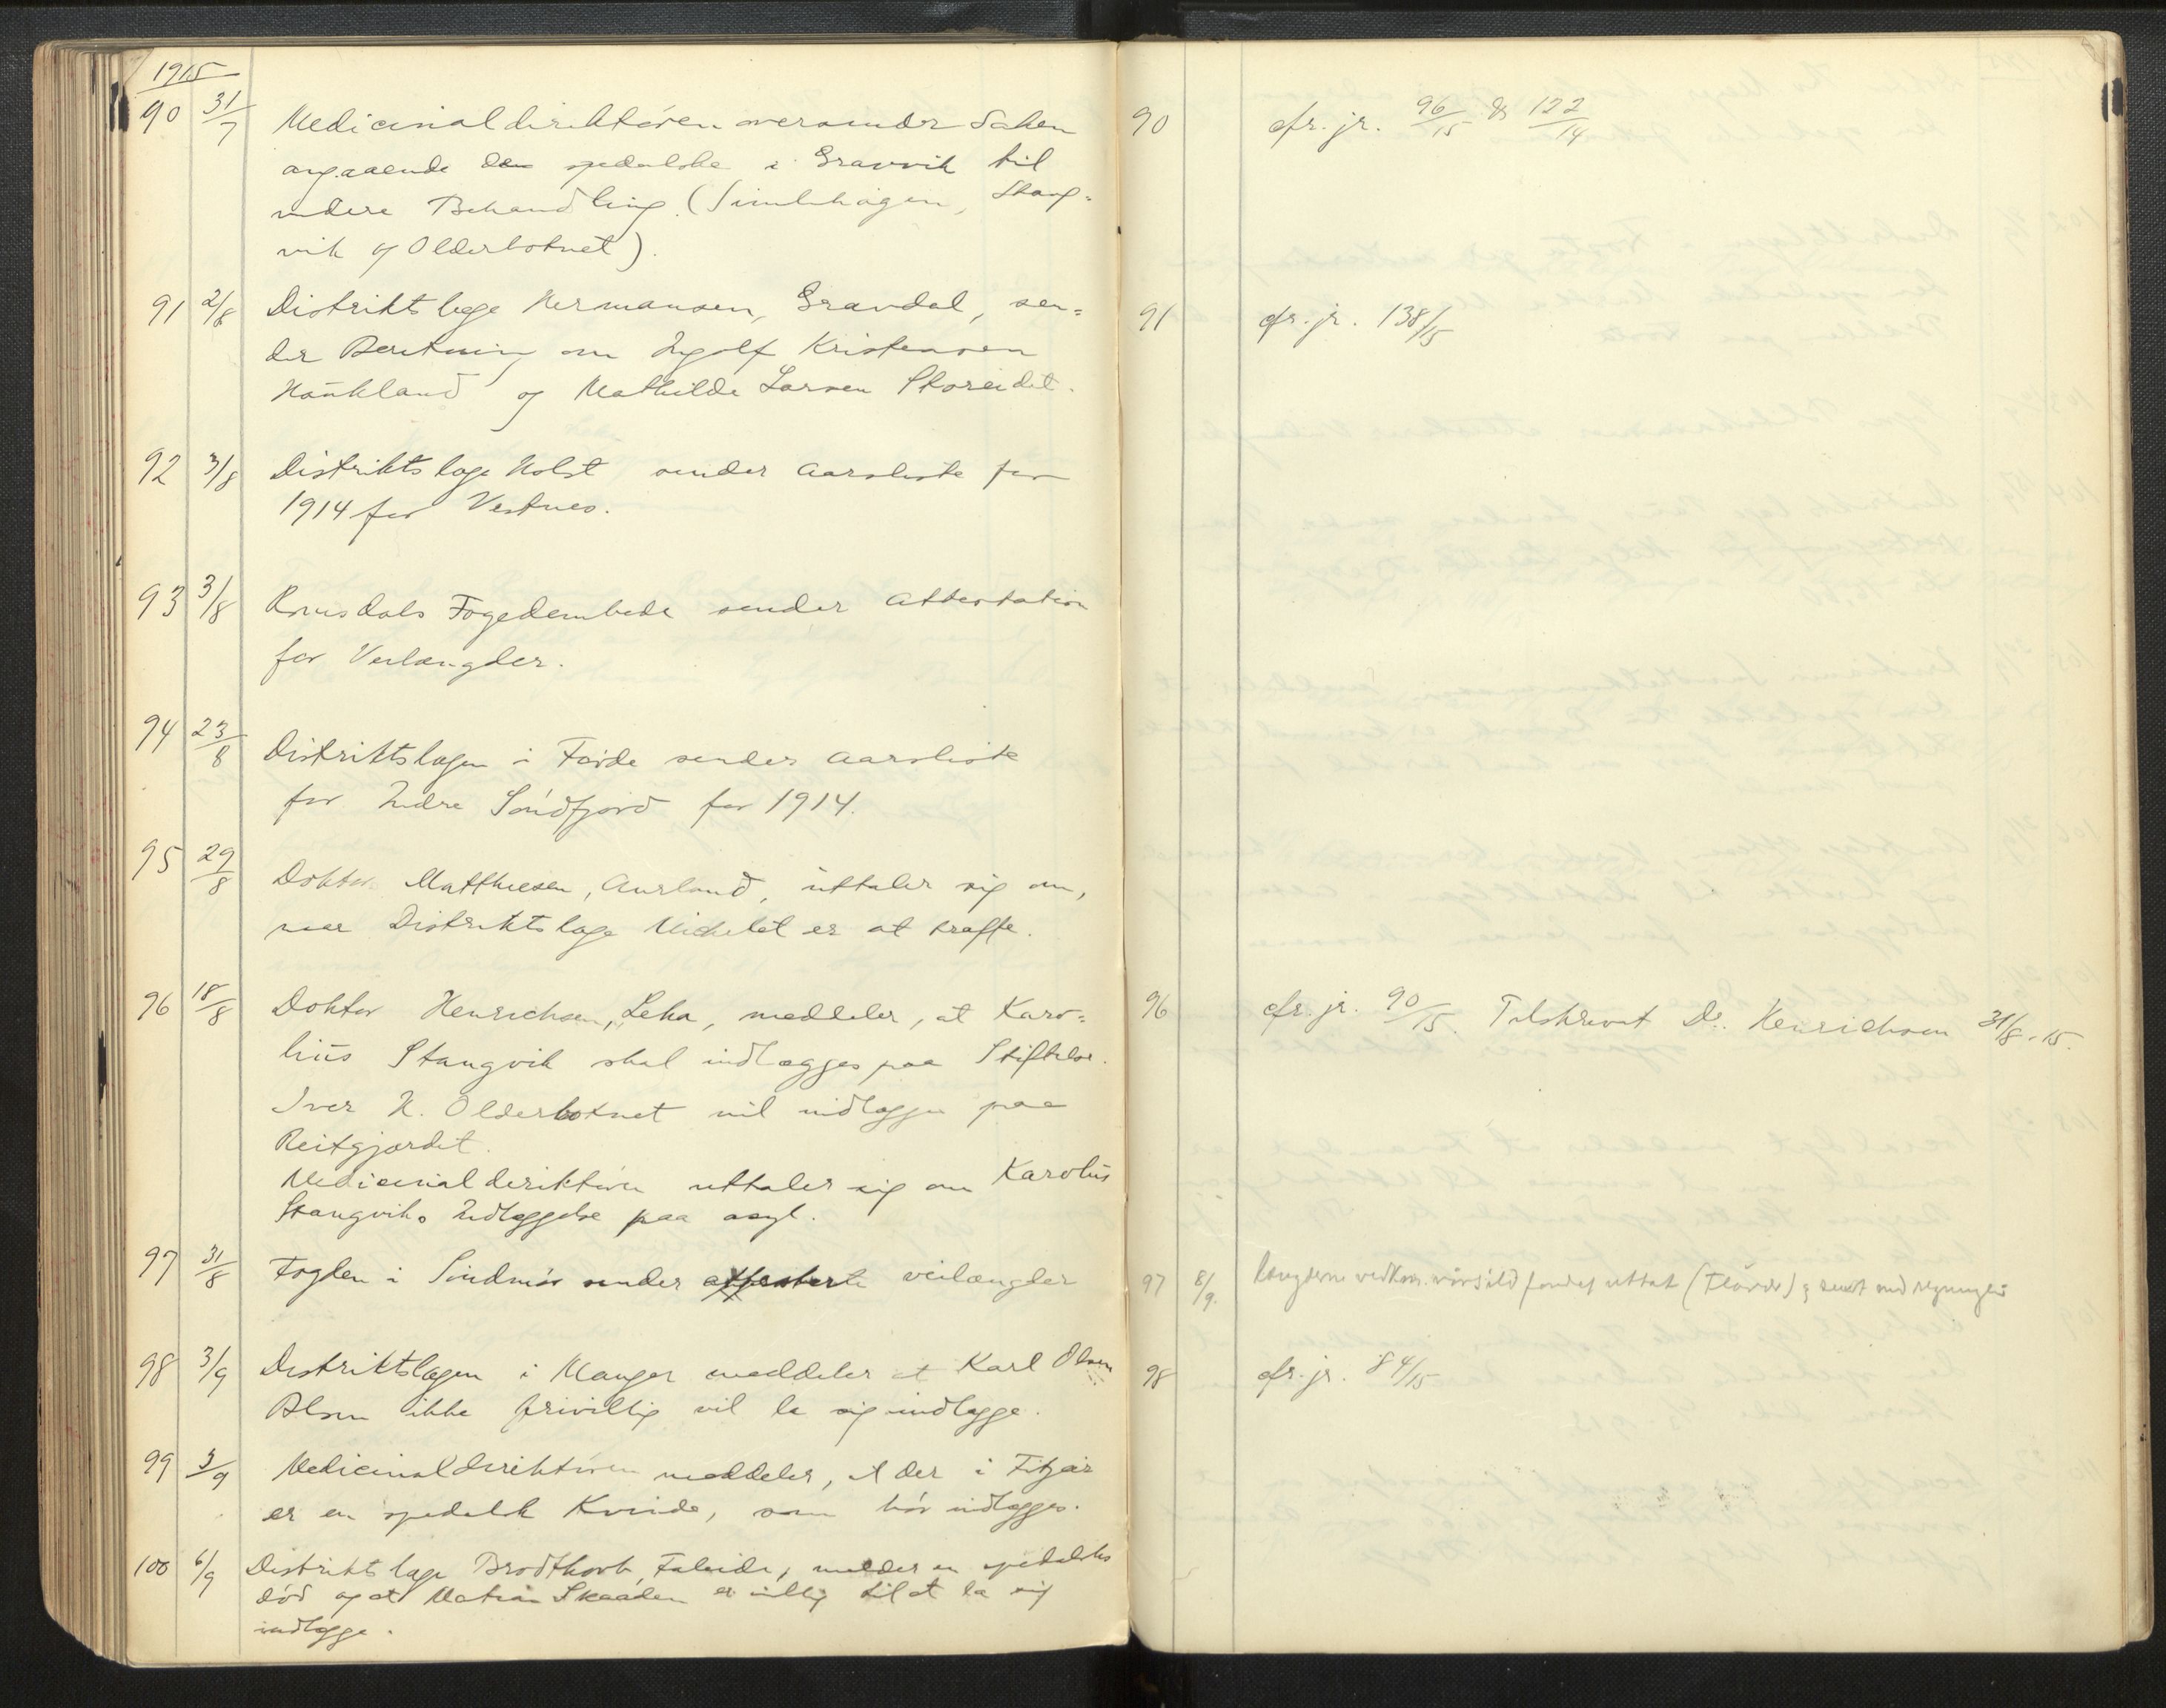 1915
90 31/7 Medicinaldirektören oversender Saken
angaaende den spedalske i Gravvik til
videre Behandling. (Simlehagen, Stang=
vik og Olderbotnet).
91 2/8 Distriktslege Hermansen, Gravdal, sen=
der Beretning om Ingolf Kristensen
Haukland og Mathilde Larsen Storeidet.
92 3/8 Distriktslæge Holst sender Aarsliste for
1914 for Vestnes.
93 3/8 Romsdals Fogedembede sender Attestation
for Veilængder.
94 23/8 Distriktslægen i Förde sender Aarsliste
for Indre Söndfjord for 1914.
95 29/8 Doktor Matthiesen, Aurland, uttaler sig om,
naar Distriktslæge Michelet er at træffe.
96 18/8 Doktor Henrichsen, Leka, meddeler, at Karo=
lius Stangvik skal indlægges paa Stiftelse.
Iver H. Olderbotnet vil indlægges paa
Reitgjærdet.
Medicinaldirektören uttaler sig om Karolius
Stangviks Indlæggelse paa asyl.
97 31/8 Fogden i Söndmör sender attesterte veilængder
98 3/9 Distriktslægen i Manger meddeler at Karl Olsen
ikke frivillig vil la sig indlægge.
99 3/9 Medicinaldirektören meddeler, at der i Fitjar
er en spedalsk Kvinde, som bör indlægges.
100 6/9 Distriktslæge Brodtkorb, Faleide, melder en spedalsks
död og at Skaaden er villig til at la sig
indlægge.
90 cfr. jr. 96/15 & 122/14
91 cfr. jr. 138/15
96 cfr. jr. 90/15. Tilskrevet Dr. Henrichsen 31/8-15.
97 8/9. Længderne vedkom. uttat (Flövær) & sendt
98 cfr. jr. 84/15